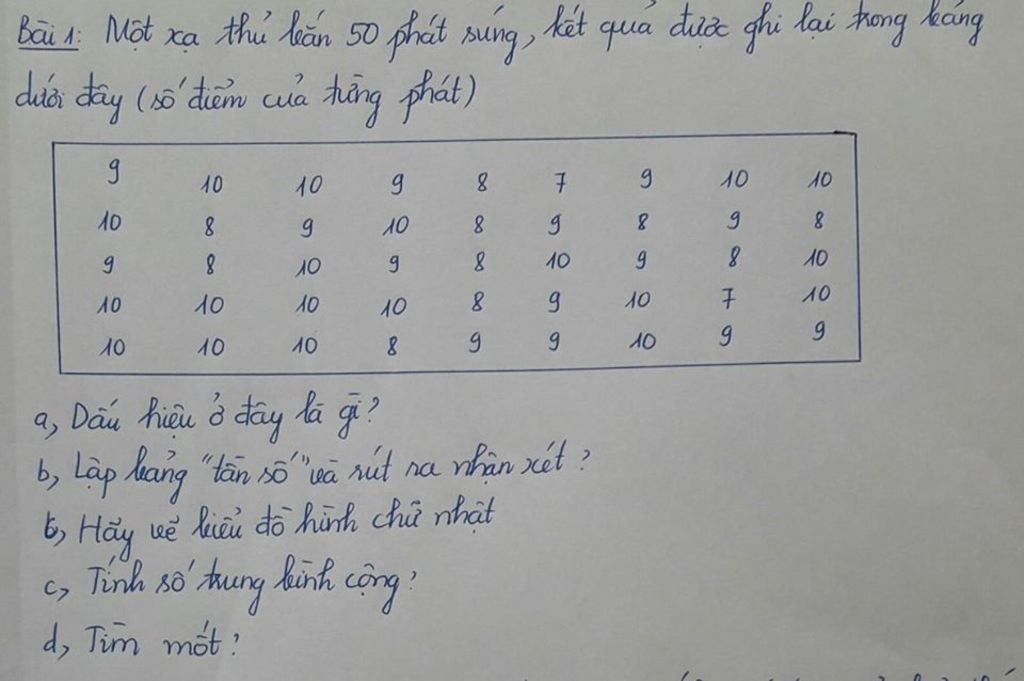 Bài 1: Một xạ thủ bắn 50 phát súng, kết quả được ghi lại trong bảng
dưới đây (số điểm của từng phát)
9 10 10 9 8 7 9 10 10
10 8 9 10 8 9 8 9 8
9 8 10 9 8 10 9 8 10
10 10 10 10 8 9 10 7 10
10 10 10 8 9 9 10 9 9
a, Dấu hiệu ở đây là gì?
b, Lập bảng "tần số" và rút ra nhận xét?
b, Hãy vẽ biểu đồ hình chữ nhật
c, Tính số trung bình cộng?
d, Tìm mốt?